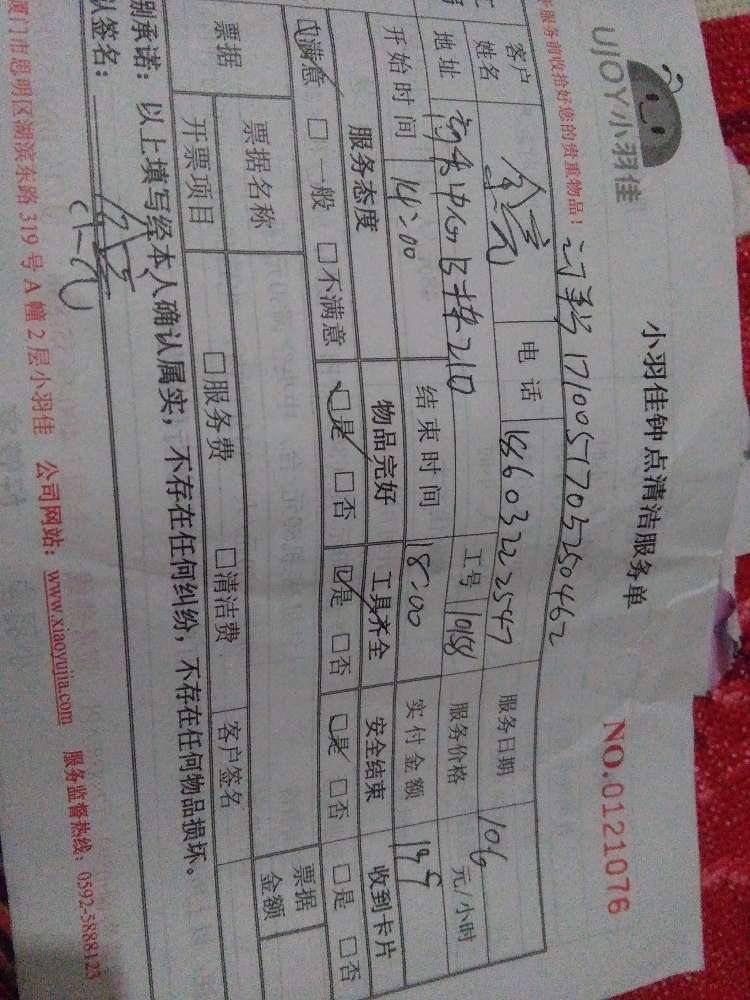 UJOY小羽佳
小羽佳钟点清洁服务单
NO.0121076
服务前收拾好您的贵重物品！
171005170525046
客户姓名 电话 服务日期 106
地址 B栋210 工号 服务价格 元/小时
开始时间 14:00 结束时间 18:00 实付金额 199
服务态度 物品完好 工具齐全 安全结束 收到卡片
☑满意 □一般 □不满意 ☑是 □否 ☑是 □否 ☑是 □否 □是 □否
票据 票据名称 票据金额
开票项目 □服务费 □清洁费 客户签名
别承诺：以上填写经本人确认属实，不存在任何纠纷，不存在任何物品损坏。
认签名：
厦门市思明区湖滨东路319号A幢2层小羽佳 公司网站：www.xiaoyujia.com 服务监督热线：0592-5888123